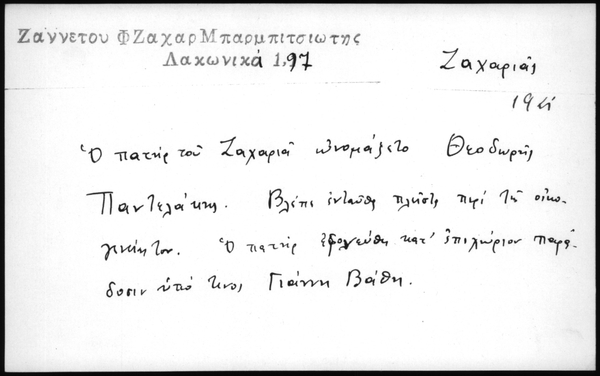 Ζαννετου Φ Ζαχαρ Μπαρμπιτσιωτης
Λακωνικά 1,97
Ζαχαριᾶς
Ὁ πατὴρ τοῦ Ζαχαριᾶ ὠνομάζετο Θεοδωρῆς
Παντελάκης. Βλέπε ἐνταῦθα πλεῖστα περὶ τῆς οἰκο-
γενείας του. Ὁ πατὴρ ἐφονεύθη κατ' ἐπιχώριον παρά-
δοσιν ὑπό τινος Γιάννη Βάθη.